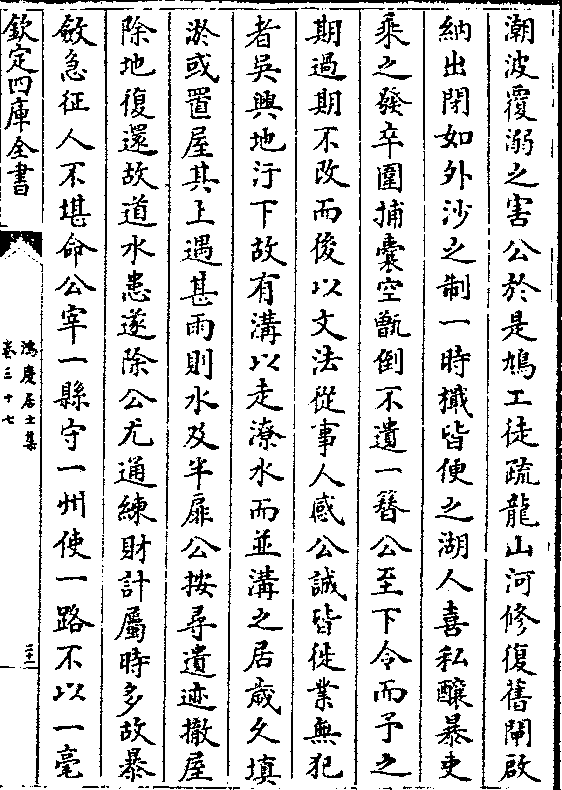 潮波覆溺之害公於是鳩工徒疏龍山河修復舊閘啟
納出閉如外沙之制一時檥皆便之湖人喜私釀暴吏
乘之發卒圍捕囊空甑倒不遺一簪公至下令而予之
期過期不改而後以文法從事人感公誠皆徙業無犯
者吳興地汙下故有溝以走潦水而並溝之居歲久填
淤或置屋其上遇甚雨則水及半扉公按尋遺迹撤屋
除地復還故道水患遂除公尤通練財計屬時多故暴
斂急征人不堪命公宰一縣守一州使一路不以一毫
欽定四庫全書
鴻慶居士集
卷三十七